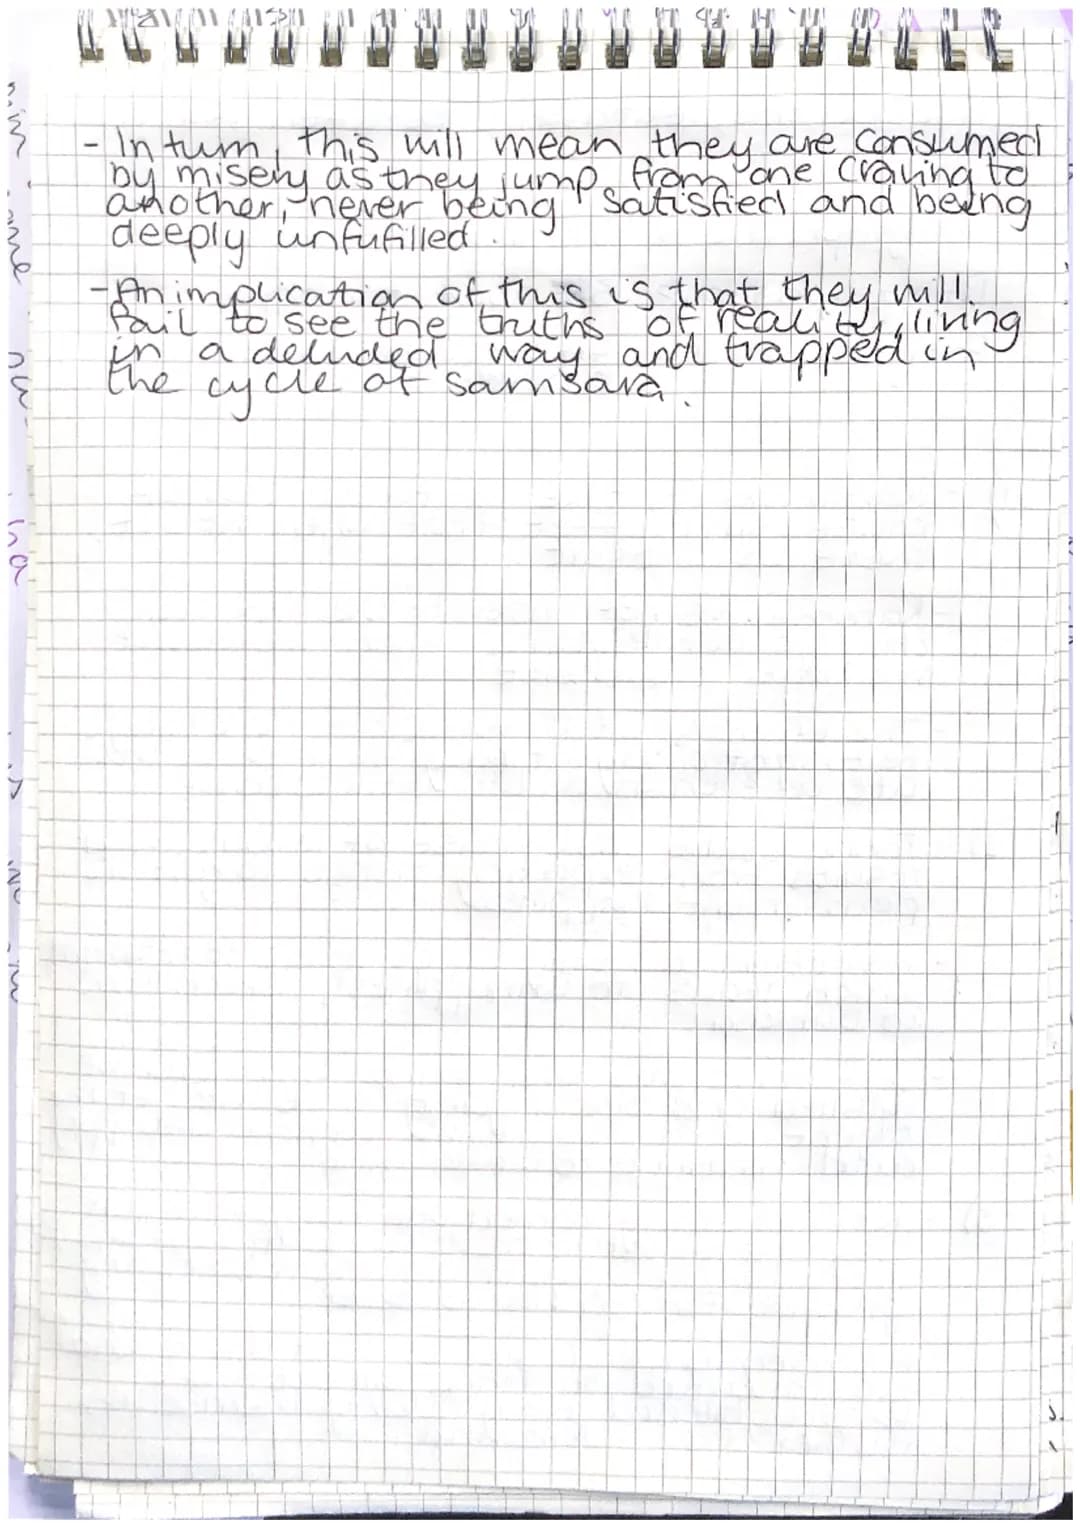 - In turn, this will mean they are consumed
by misery as they jump from one craving to
another, never being satisfied and being
deeply unfufilled.
- An implication of this is that they will
fail to see the truths of reality, living
in a deluded way and trapped in
the cycle of samsara.